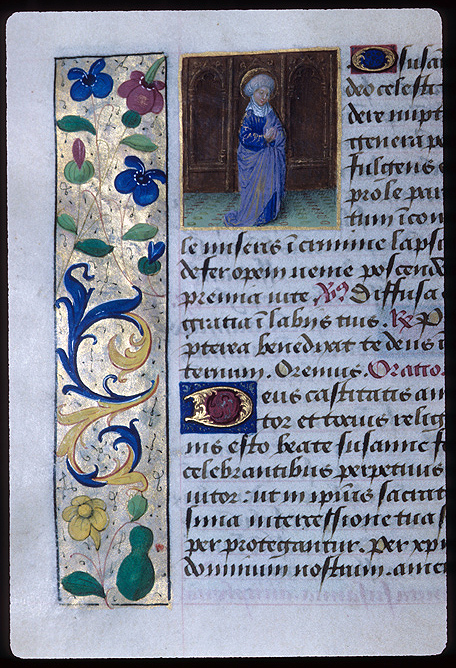 O susan
deo celesti
dere nupt
genera p
fulgens
prole par
tum i con
le miseris i crimine lapsi
defer opem veniē poscend
premia vite. V. Diffusa
gratia i labijs tuis. R. P
pterea benedixit te deus i
ternum. Oremus. Oratio
Deus castitatis am
tor et totius relig
nis esto beate susanne f
celebrantibus perpetuus
iutor: ut in ipius sacrat
sima intercessione tua s
per protegantur. Per xpm
dominum nostrum. amen